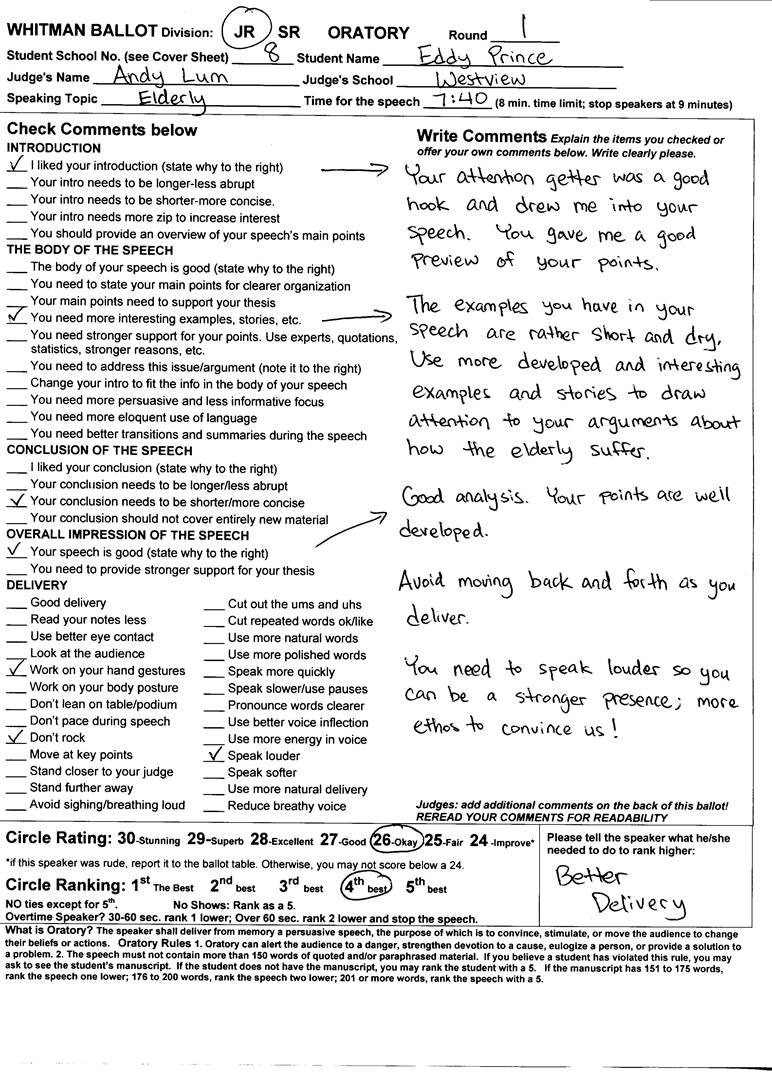 WHITMAN BALLOT Division: JR SR ORATORY Round 1
Student School No. (see Cover Sheet) 8 Student Name Eddy Prince
Judge's Name Andy Lum Judge's School Westview
Speaking Topic Elderly Time for the speech 7:40 (8 min. time limit; stop speakers at 9 minutes)
Check Comments below
INTRODUCTION
✓ I liked your introduction (state why to the right)
Your intro needs to be longer-less abrupt
Your intro needs to be shorter-more concise.
Your intro needs more zip to increase interest
You should provide an overview of your speech's main points
THE BODY OF THE SPEECH
The body of your speech is good (state why to the right)
You need to state your main points for clearer organization
Your main points need to support your thesis
✓ You need more interesting examples, stories, etc.
You need stronger support for your points. Use experts, quotations,
statistics, stronger reasons, etc.
You need to address this issue/argument (note it to the right)
Change your intro to fit the info in the body of your speech
You need more persuasive and less informative focus
You need more eloquent use of language
You need better transitions and summaries during the speech
CONCLUSION OF THE SPEECH
I liked your conclusion (state why to the right)
Your conclusion needs to be longer/less abrupt
✓ Your conclusion needs to be shorter/more concise
Your conclusion should not cover entirely new material
OVERALL IMPRESSION OF THE SPEECH
✓ Your speech is good (state why to the right)
You need to provide stronger support for your thesis
DELIVERY
Good delivery
Read your notes less
Use better eye contact
Look at the audience
✓ Work on your hand gestures
Work on your body posture
Don't lean on table/podium
Don't pace during speech
✓ Don't rock
Move at key points
Stand closer to your judge
Stand further away
Avoid sighing/breathing loud
Cut out the ums and uhs
Cut repeated words ok/like
Use more natural words
Use more polished words
Speak more quickly
Speak slower/use pauses
Pronounce words clearer
Use better voice inflection
Use more energy in voice
✓ Speak louder
Speak softer
Use more natural delivery
Reduce breathy voice
Write Comments Explain the items you checked or
offer your own comments below. Write clearly please.
Your attention getter was a good
hook and drew me into your
speech. You gave me a good
preview of your points.
The examples you have in your
speech are rather short and dry.
Use more developed and interesting
examples and stories to draw
attention to your arguments about
how the elderly suffer.
Good analysis. Your points are well
developed.
Avoid moving back and forth as you
deliver.
You need to speak louder so you
can be a stronger presence; more
ethos to convince us!
Judges: add additional comments on the back of this ballot!
REREAD YOUR COMMENTS FOR READABILITY
Circle Rating: 30-Stunning 29-Superb 28-Excellent 27-Good 26-Okay 25-Fair 24-Improve*
*if this speaker was rude, report it to the ballot table. Otherwise, you may not score below a 24.
Circle Ranking: 1st The Best 2nd best 3rd best 4th best 5th best
NO ties except for 5th. No Shows: Rank as a 5.
Overtime Speaker? 30-60 sec. rank 1 lower; Over 60 sec. rank 2 lower and stop the speech.
Please tell the speaker what he/she
needed to do to rank higher:
Better
Delivery
What is Oratory? The speaker shall deliver from memory a persuasive speech, the purpose of which is to convince, stimulate, or move the audience to change
their beliefs or actions. Oratory Rules 1. Oratory can alert the audience to a danger, strengthen devotion to a cause, eulogize a person, or provide a solution to
a problem. 2. The speech must not contain more than 150 words of quoted and/or paraphrased material. If you believe a student has violated this rule, you may
ask to see the student's manuscript. If the student does not have the manuscript, you may rank the student with a 5. If the manuscript has 151 to 175 words,
rank the speech one lower; 176 to 200 words, rank the speech two lower; 201 or more words, rank the speech with a 5.